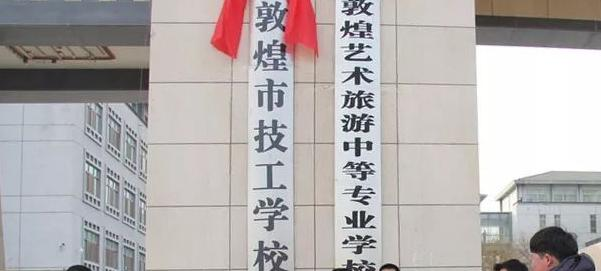 敦煌市技工学校
敦煌艺术旅游中等专业学校